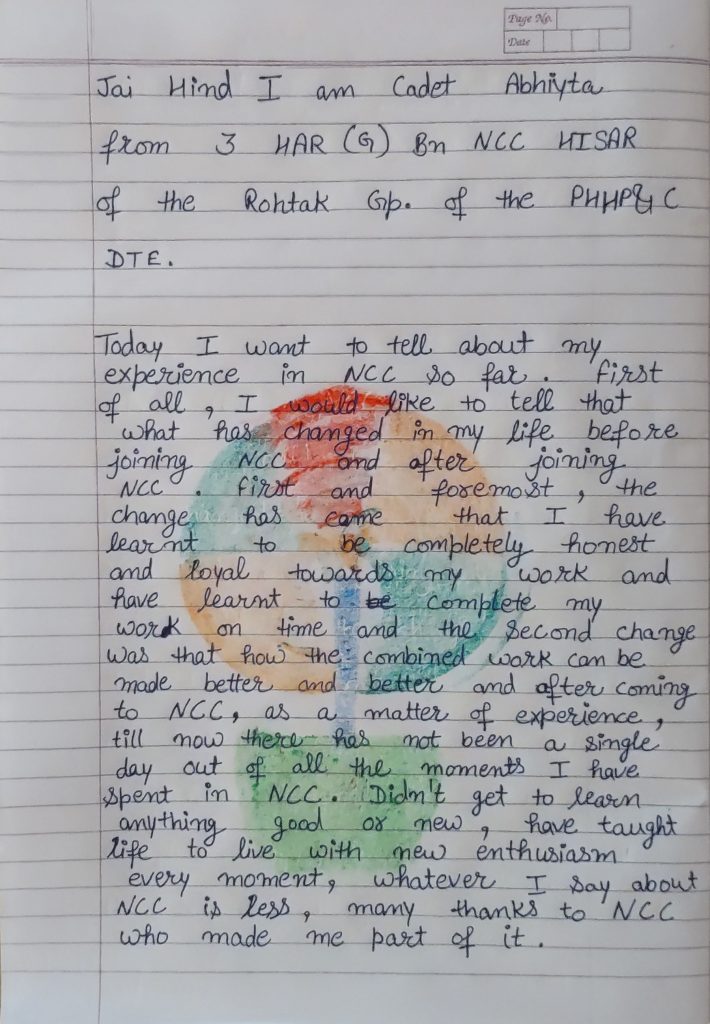 Page No.
Date
Jai Hind I am Cadet Abhiyta
from 3 HAR (G) Bn NCC HISAR
of the Rohtak Gp. of the PHHP&C
DTE.
Today I want to tell about my
experience in NCC so far. first
of all, I would like to tell that
what has changed in my life before
joining NCC and after joining
NCC. first and foremost, the
change has came that I have
learnt to be completely honest
and loyal towards my work and
have learnt to be complete my
work on time and the second change
was that how the combined work can be
made better and better and after coming
to NCC, as a matter of experience,
till now there has not been a single
day out of all the moments I have
spent in NCC. Didn't get to learn
anything good or new, have taught
life to live with new enthusiasm
every moment, whatever I say about
NCC is less, many thanks to NCC
who made me part of it.